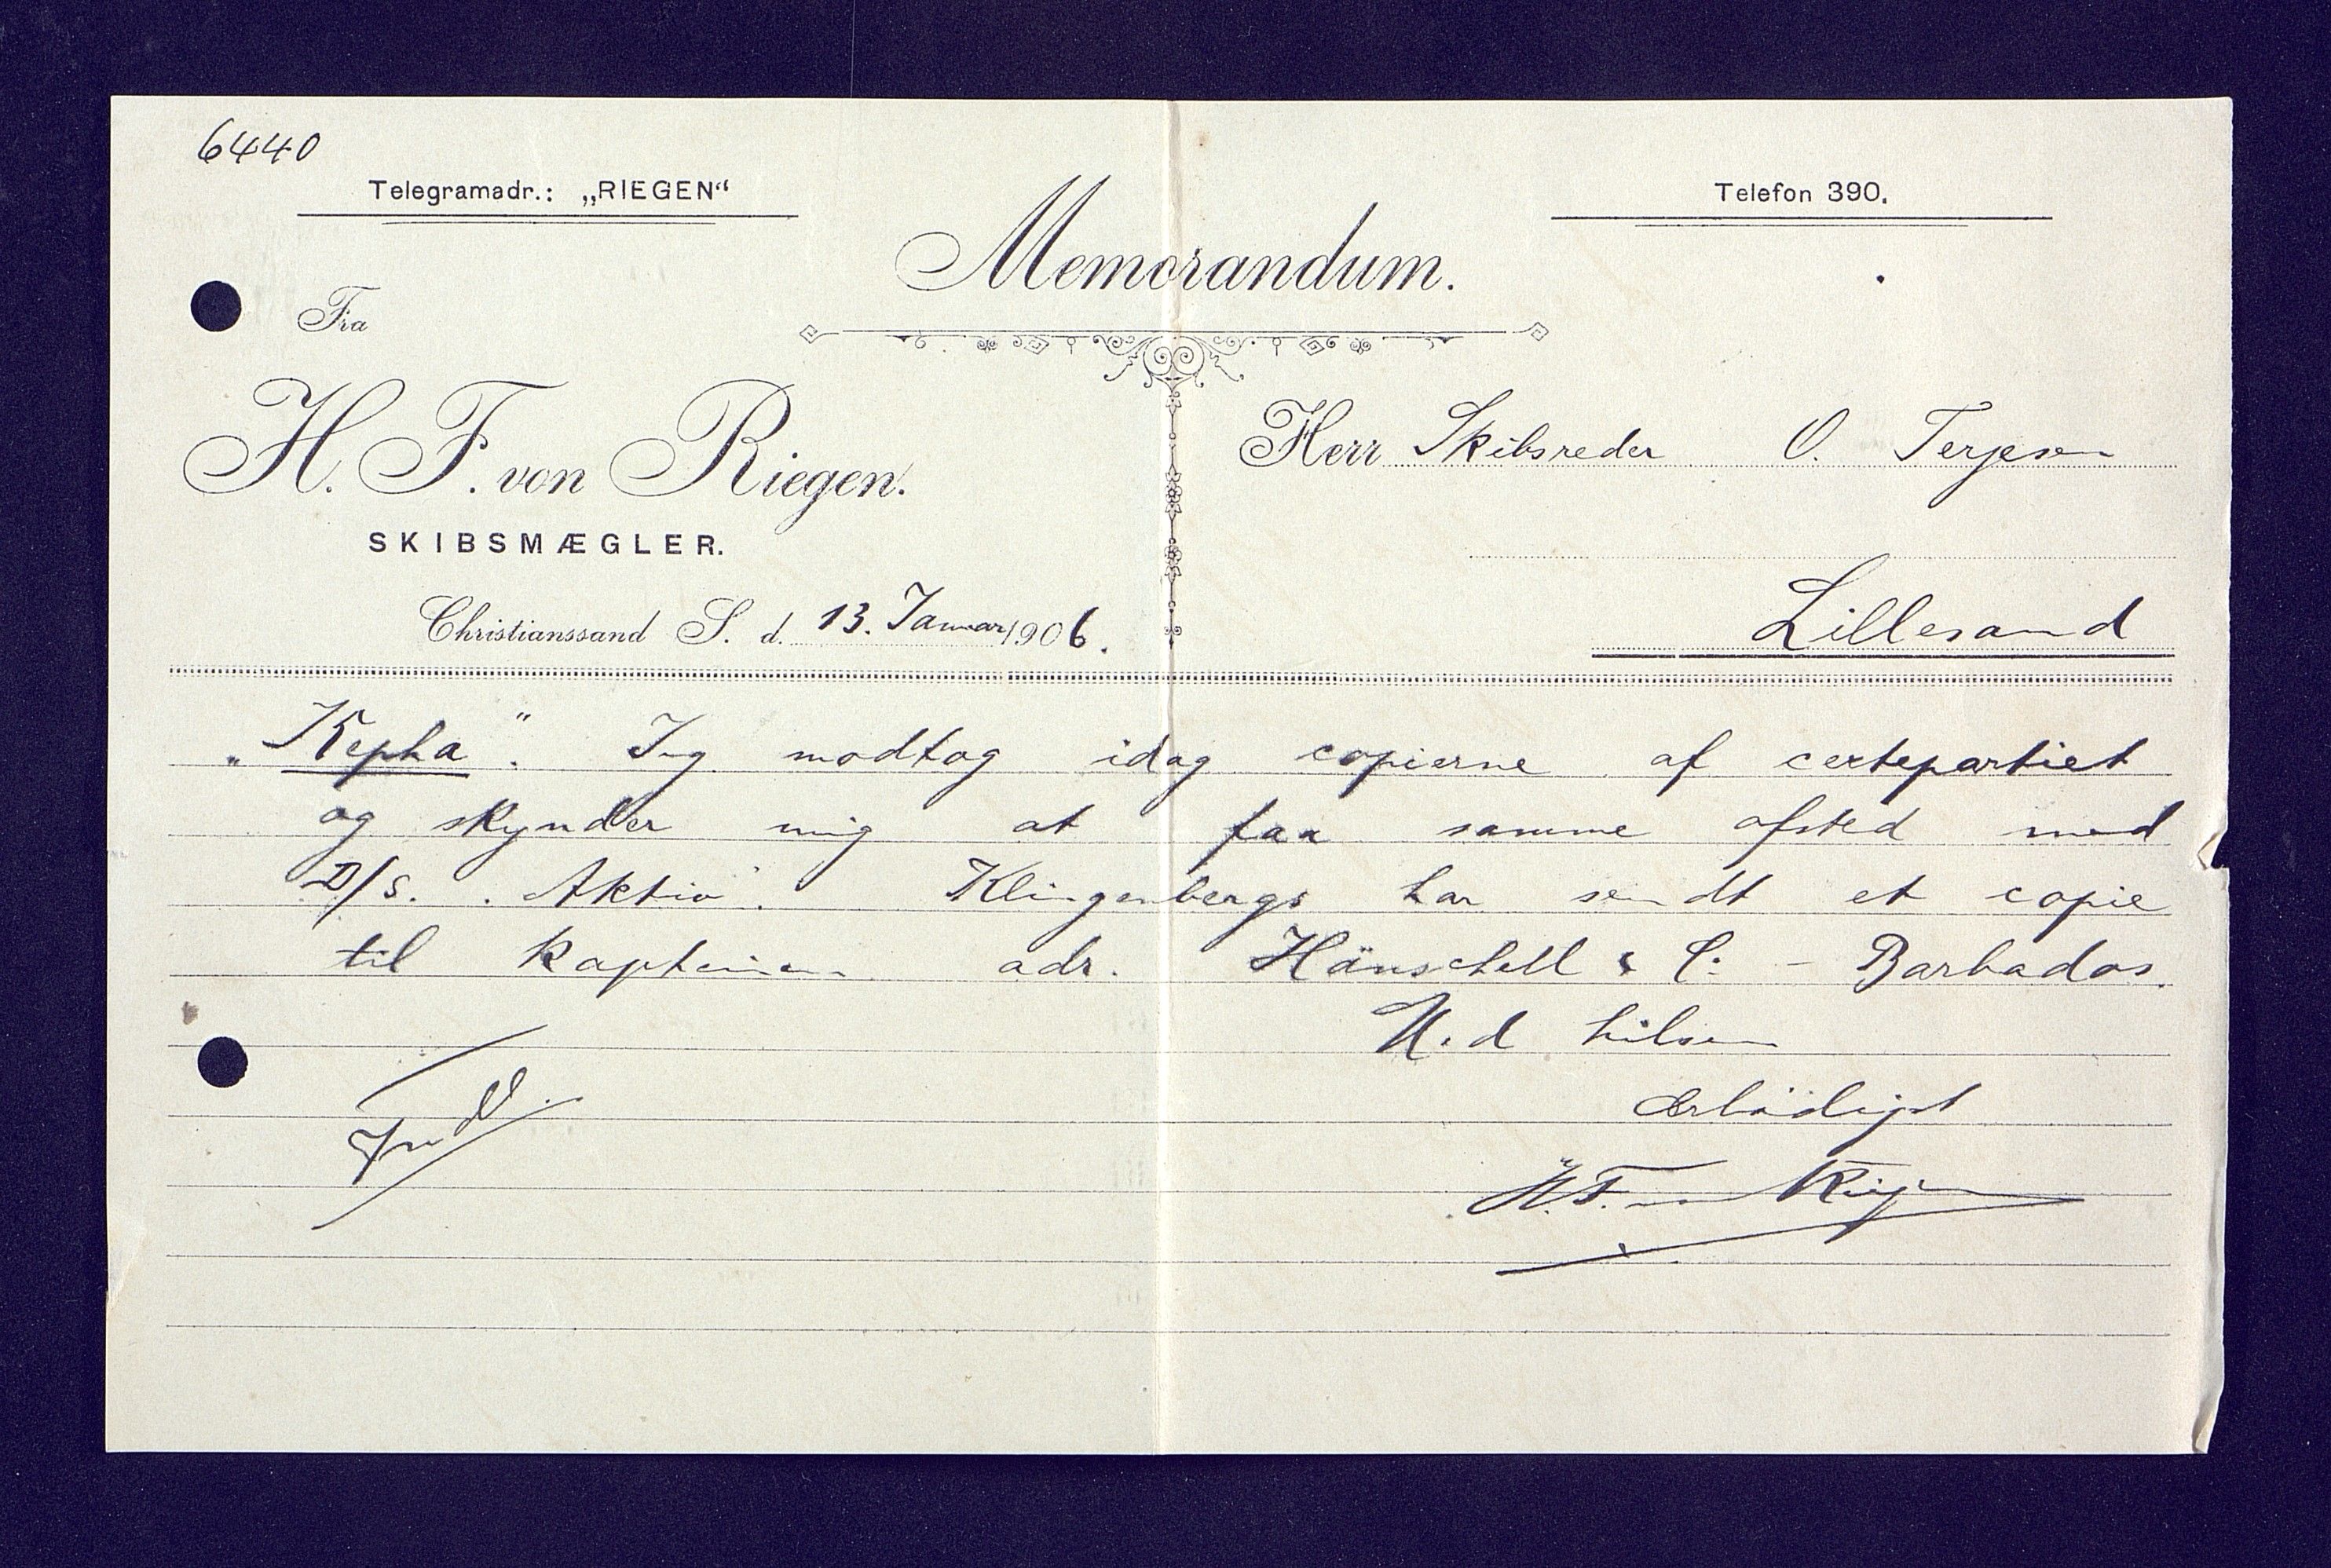 6440
Telegramadr.: „RIEGEN“
Telefon 390.
Memorandum.
Fra
H. F. von Riegen.
SKIBSMÆGLER.
Christianssand S. d. 13. Januar 1906.
Herr Skibsreder O. Terjesen
Lillesand
„Kepha". Jeg modtog idag copierne af certepartiet
og skynder mig at faa samme afsted med
D/S. „Aktiv". Klingenbergs har sendt et copie
til kapteinen adr. Hänschell & Co - Barbados.
Med hilsen
ærbödigst
H. F. von Riegen